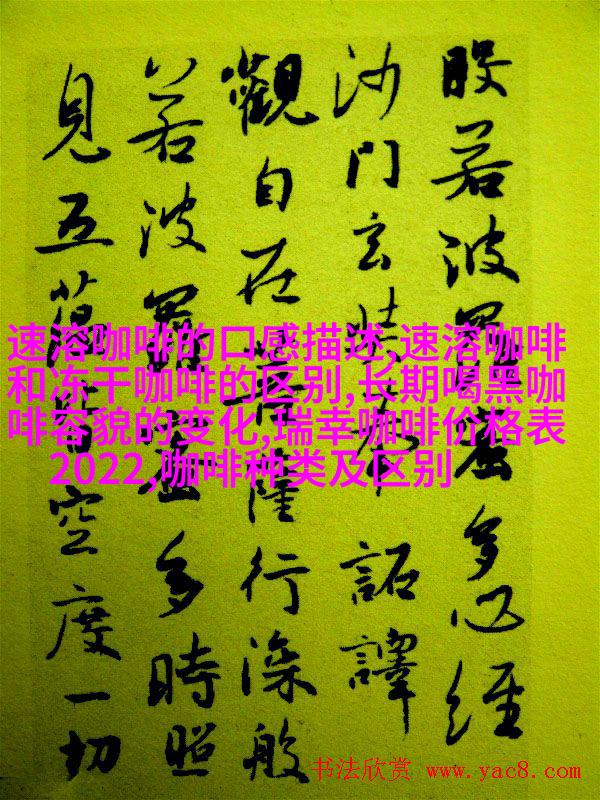 般若波羅蜜多心經
沙門玄奘奉詔譯
觀自在菩薩行深般
若波羅蜜多時照
見五蘊皆空度一切
速溶咖啡的口感描述,速溶咖啡
和冻干咖啡的区别,长期喝黑咖
啡容貌的变化,瑞幸咖啡价格表
2022,咖啡种类及区别
书法欣赏 www.yac8.com